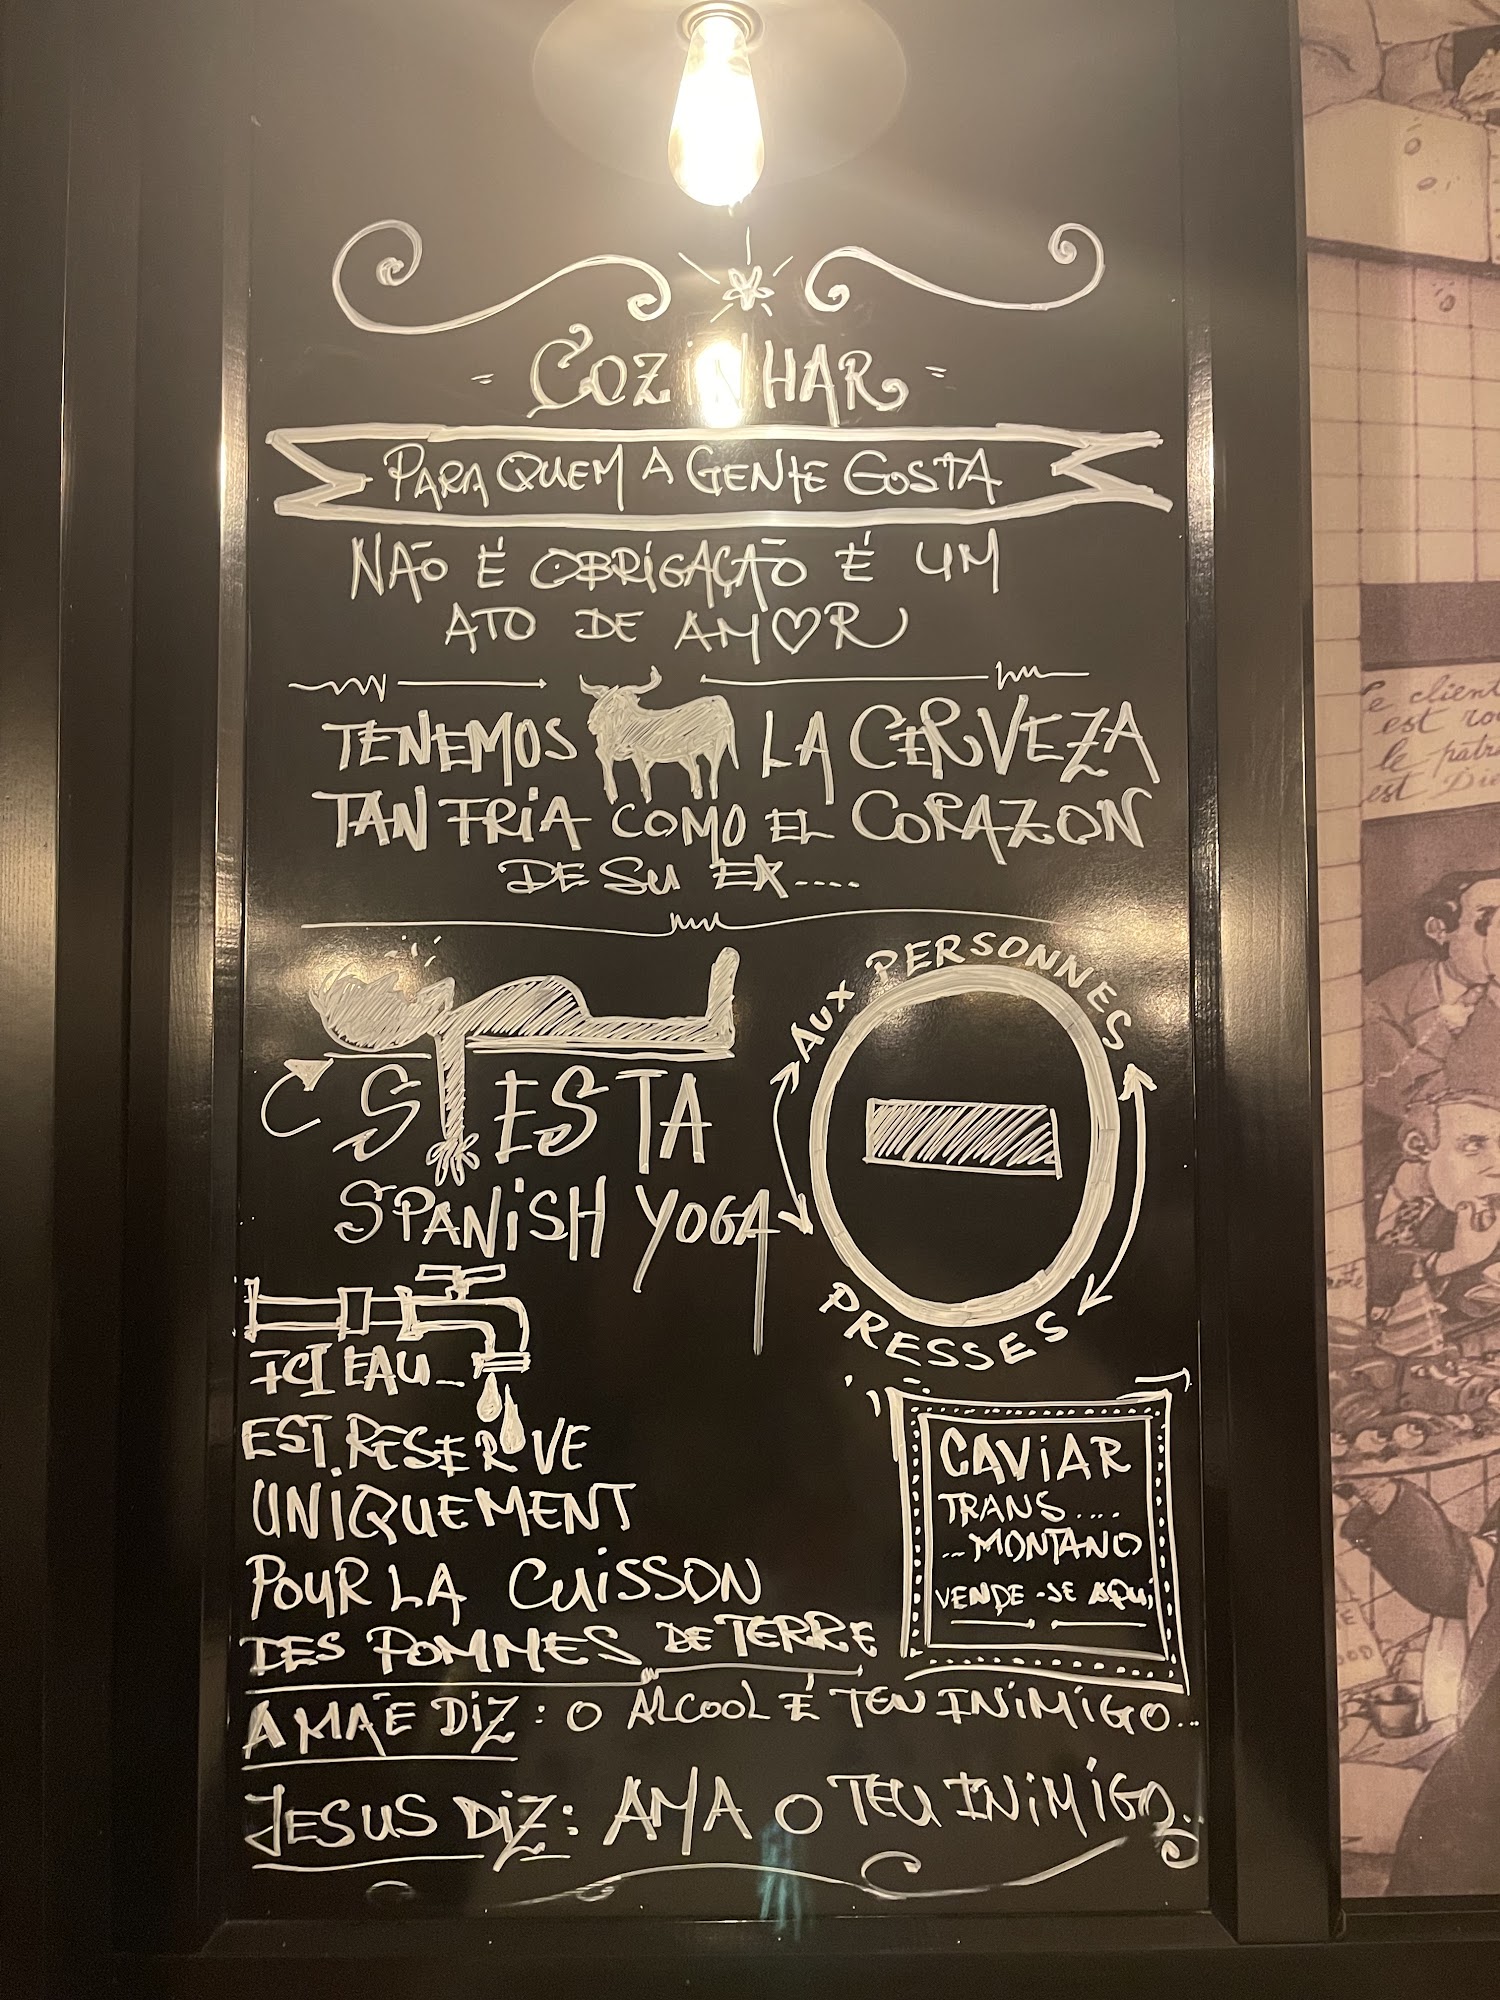 COZINHAR
PARA QUEM A GENTE GOSTA
NÃO É OBRIGAÇÃO É UM
ATO DE AM♡R
TENEMOS LA CERVEZA
TAN FRIA COMO EL CORAZON
DE SU EX....
SIESTA
SPANISH YOGA
AUX PERSONNES
PRESSES
ICI EAU...
EST RESERVE
UNIQUEMENT
POUR LA CUISSON
DES POMMES DE TERRE
CAVIAR
TRANS....
...MONTANO
VENDE-SE AQUI
A MÃE DIZ: O ALCOOL É TEU INIMIGO...
JESUS DIZ: AMA O TEU INIMIGO.
le client
est roi
le patr
est Die